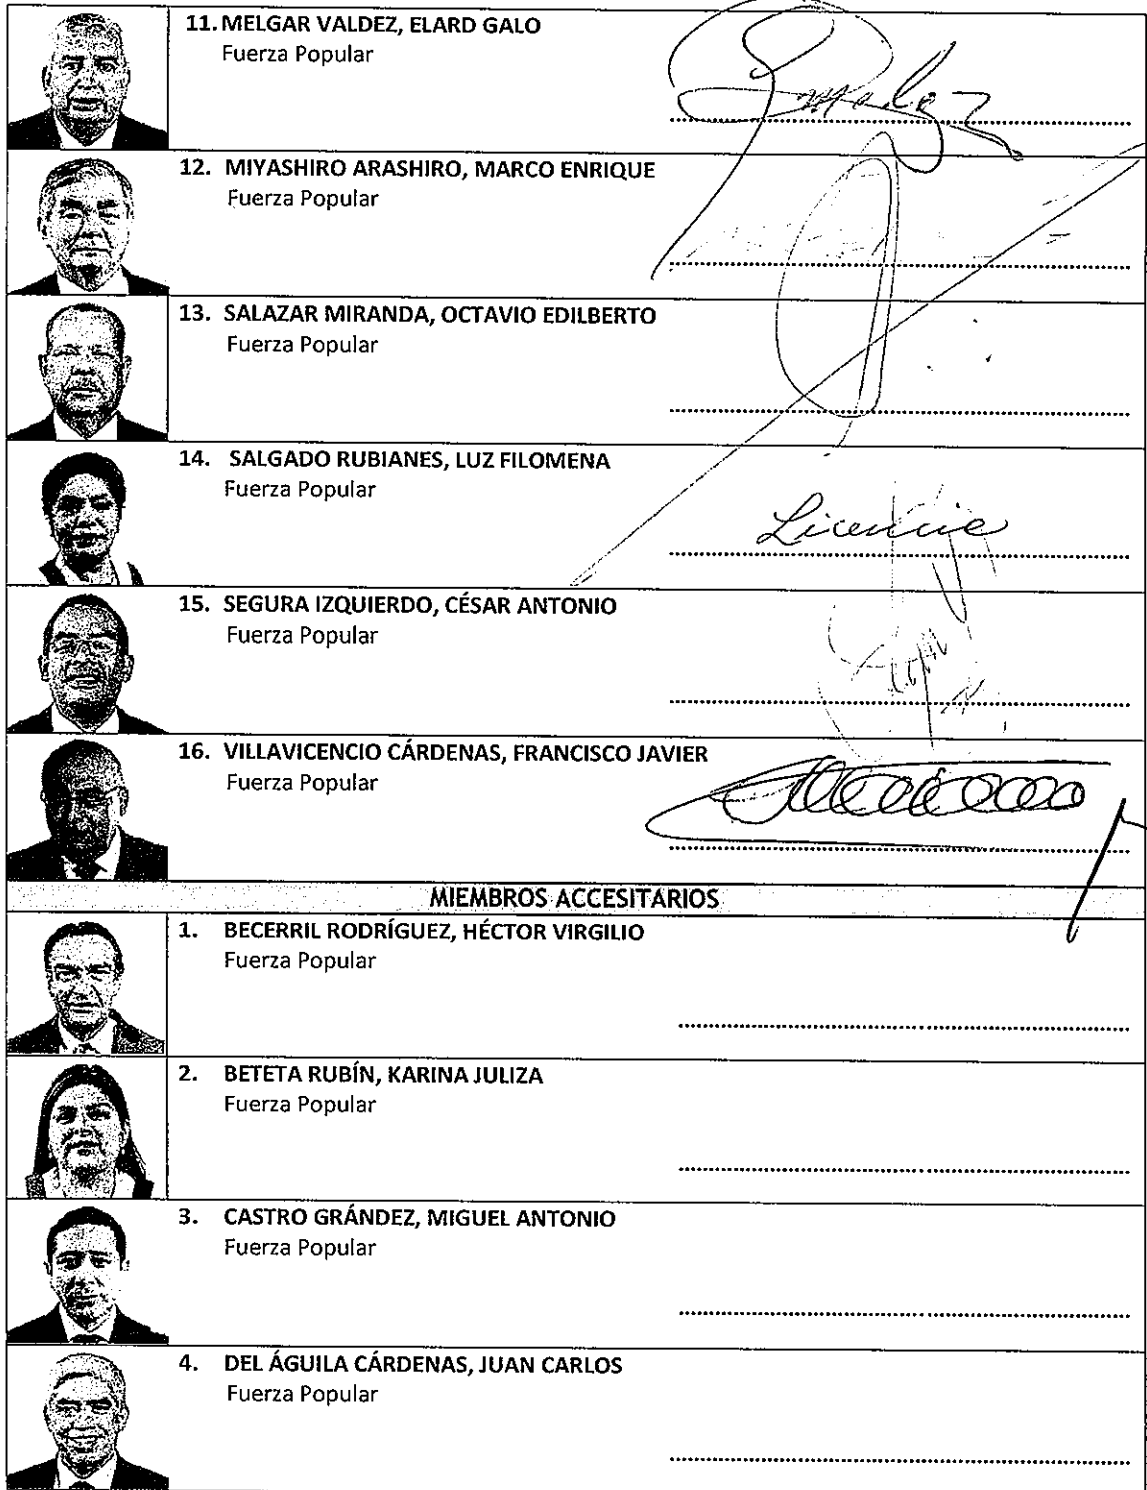 11. MELGAR VALDEZ, ELARD GALO
Fuerza Popular
12. MIYASHIRO ARASHIRO, MARCO ENRIQUE
Fuerza Popular
13. SALAZAR MIRANDA, OCTAVIO EDILBERTO
Fuerza Popular
14. SALGADO RUBIANES, LUZ FILOMENA
Fuerza Popular
Licencia
15. SEGURA IZQUIERDO, CÉSAR ANTONIO
Fuerza Popular
16. VILLAVICENCIO CÁRDENAS, FRANCISCO JAVIER
Fuerza Popular
MIEMBROS ACCESITARIOS
1. BECERRIL RODRÍGUEZ, HÉCTOR VIRGILIO
Fuerza Popular
2. BETETA RUBÍN, KARINA JULIZA
Fuerza Popular
3. CASTRO GRÁNDEZ, MIGUEL ANTONIO
Fuerza Popular
4. DEL ÁGUILA CÁRDENAS, JUAN CARLOS
Fuerza Popular